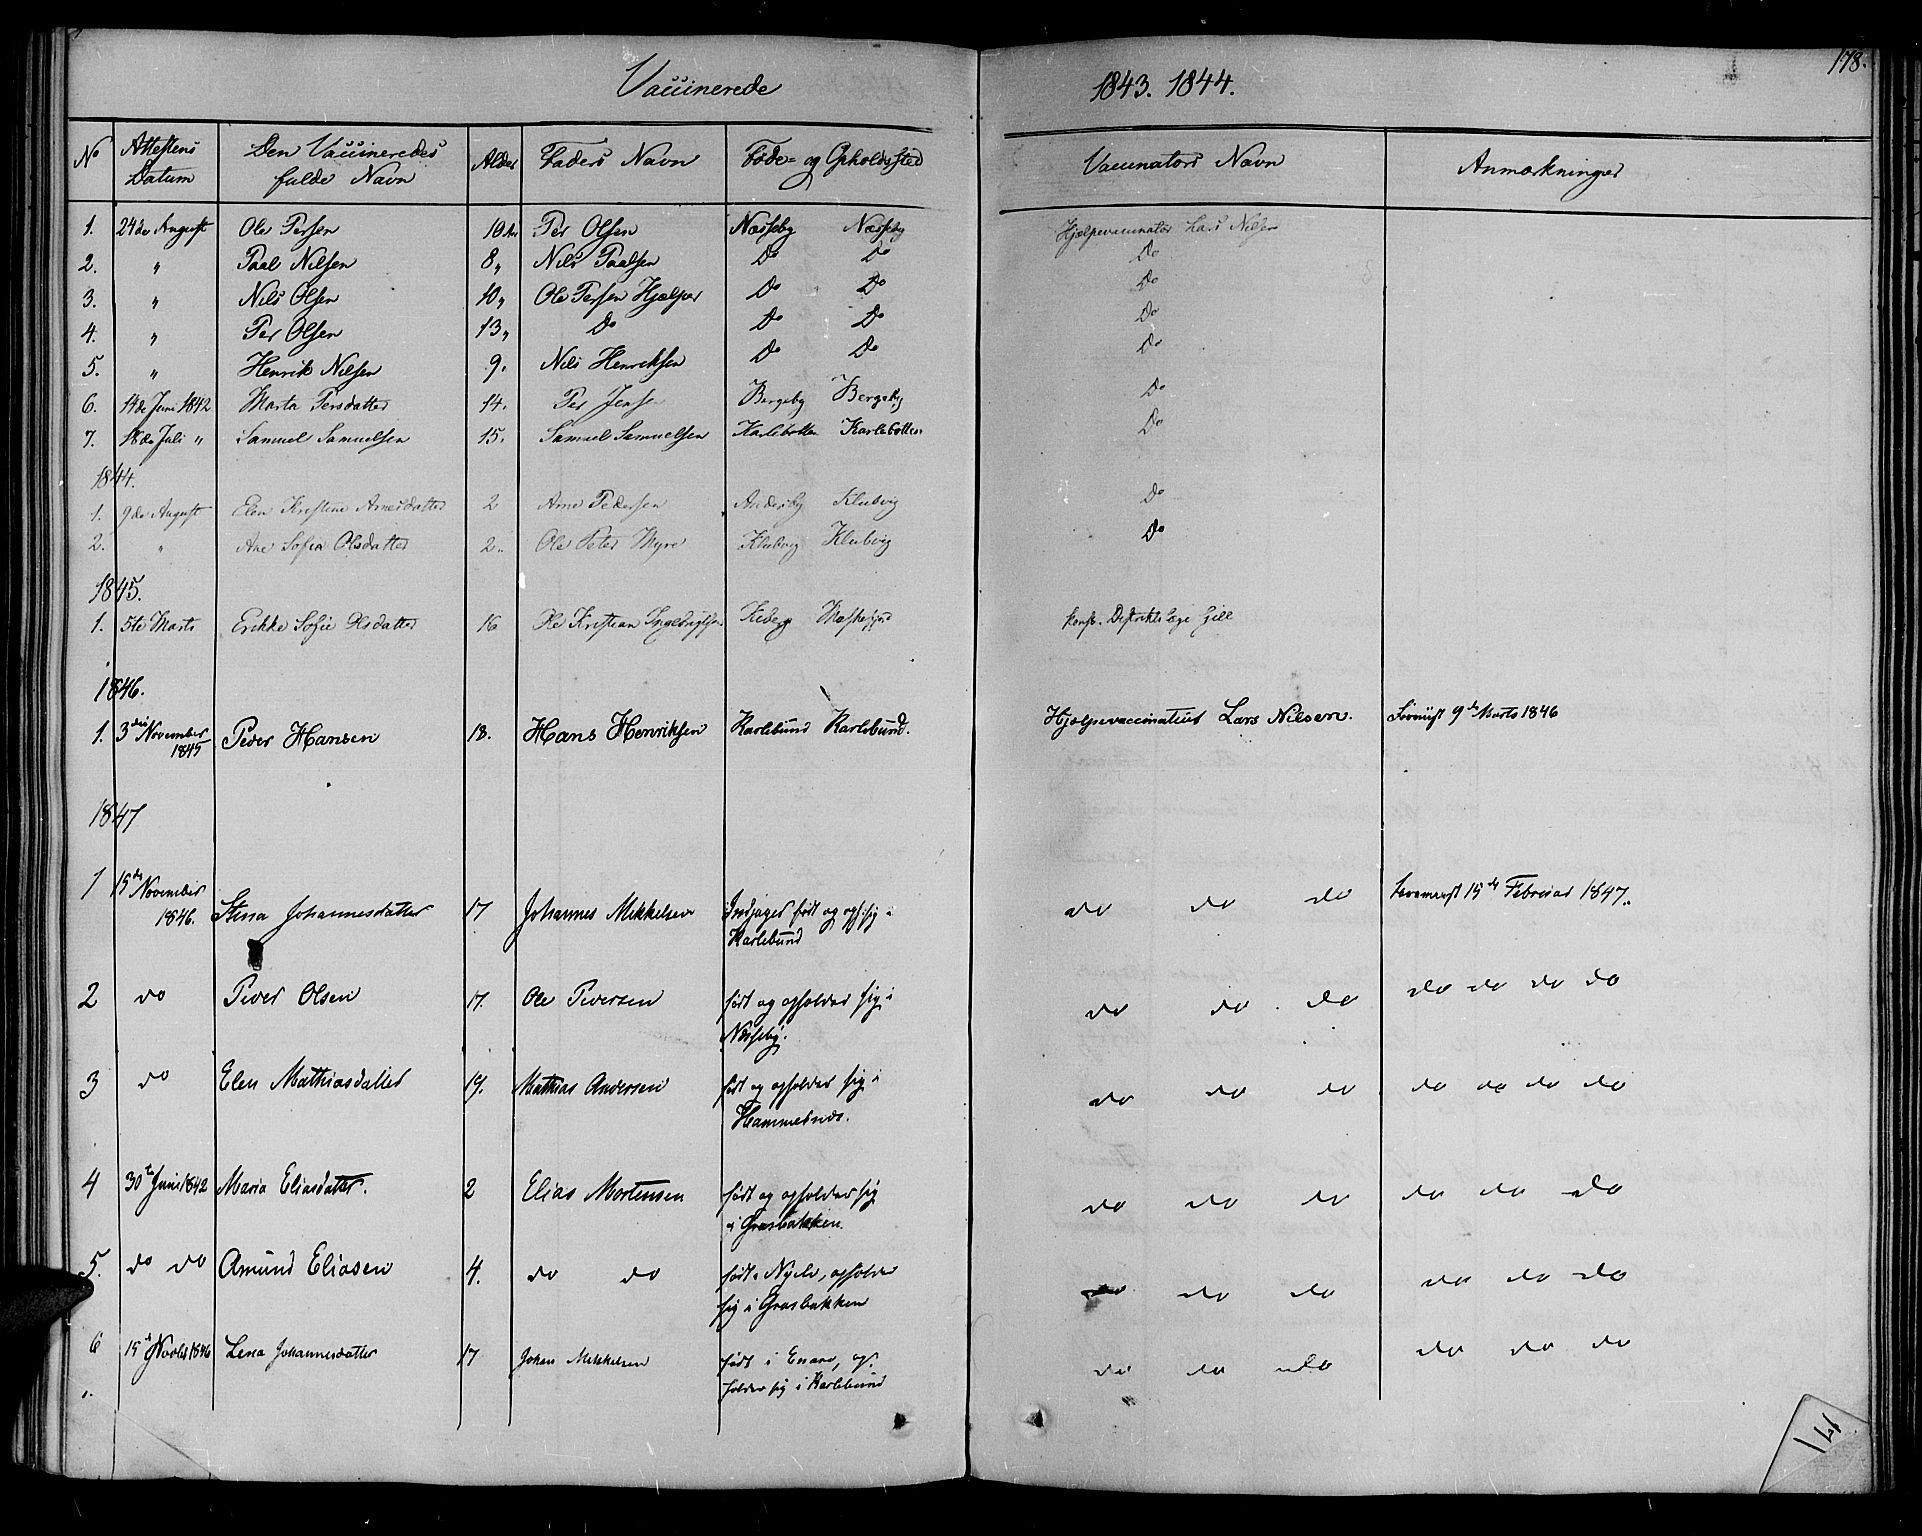 Vaccinerede 1843. 1844. 178.
No Attestens Datum Den Vaccineredes fulde Navn Alder Faders Navn Føde- og Opholdssted Vaccinators Navn Anmærkninger
1. 24de August Ole Persen 10 Aar Per Olsen Næsseby Næsseby Hjælpevaccinatør Lars Nilsen
2. " Paal Nilsen 8 " Nils Paalsen Do Do Do
3. " Nils Olsen 10 " Ole Persen Hjelper Do Do Do
4. " Per Olsen 13 " Do Do Do Do
5. " Henrik Nilsen 9. Nils Henriksen Do Do Do
6. 14de Juni 1842 Marta Persdatter 14. Per Jensen Bergeby Bergeby Do
7. 18de Juli " Samuel Samuelsen 15. Samuel Samuelsen Karlebotten Karlebotten Do
1844.
1. 9de August Elen Kristine Arnesdatter 2 Arne Pedersen Andersby Klubvig Do
2. " Ane Sofia Olsdatter 2. Ole Peter Myre Klubvig Klubvig Do
1845.
1. 5te Marts Erikke Sofie Olsdatter 16 Ole Kristian Ingebrigtsen Kiberg Mæskefjord Konst. Distriktslæge Gill
1846.
1. 3die November 1845 Peder Hansen 18. Hans Henriksen Karlebund Karlebund. Hjælpevaccinateur Lars Nilsen. 9de Marts 1846
1847
1 15de November 1846. Stina Johannesdatter 17 Johannes Mikkelsen Indjager født og oph. sig i
Karlebund do do do 15de Februar 1847.
2 do Peder Olsen 17. Ole Pedersen født og opholder sig i
Næsseby. do do do do do do do
3 do Elen Mathiasdatter 19. Mathias Andersen født og opholder sig i
Hammernæs. do do do do do do do
4 30te Juni 1842 Maria Eliasdatter. 2 Elias Mortensen født og opholder sig
i Græsbakken. do do do do do do
5. do do Amund Eliasen 4. do do født i Nyelv, opholder
sig i Græsbakken do do do do do do
6 15de Novbr 1846 Lena Johannesdatter 17 Johan Mikkelsen født i Enare, op-
holder sig i Karlebund do do do do do do
171